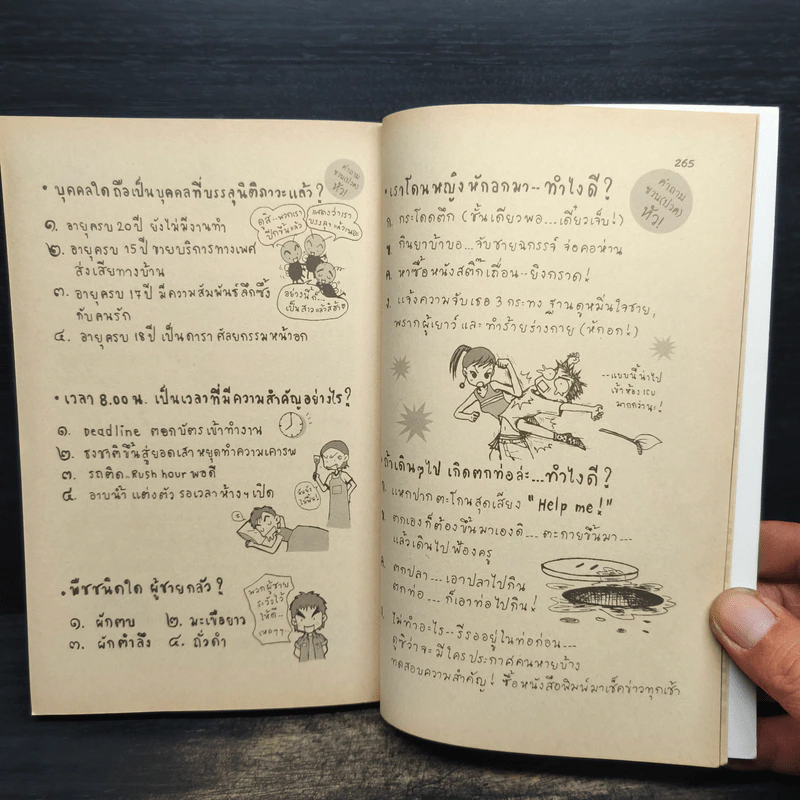 คำถาม
ชวน(ปวด)
หัว!
• บุคคลใด ถือเป็นบุคคลที่บรรลุนิติภาวะแล้ว?
๑. อายุครบ 20 ปี ยังไม่มีงานทำ
๒. อายุครบ 15 ปี ขายบริการทางเพศ
ส่งเสียทางบ้าน
๓. อายุครบ 17 ปี มีความสัมพันธ์ลึกซึ้ง
กับคนรัก
๔. อายุครบ 18 ปี เป็นดารา ศัลยกรรมหน้าอก
ดูสิ...พวกเรา
ปีกขึ้นแล้ว
แสดงว่าเรา
บรรลุแล้ว
อย่างนี้ก็
เป็นสาวแล้วสิ
• เวลา 8.00 น. เป็นเวลาที่มีความสำคัญอย่างไร?
๑. Deadline ตอกบัตรเข้าทำงาน
๒. ธงชาติขึ้นสู่ยอดเสา หยุดทำความเคารพ
๓. รถติด...Rush hour พอดี
๔. อาบน้ำ แต่งตัว รอเวลาห้างฯ เปิด
• พืชชนิดใด ผู้ชายกลัว?
๑. ผักตบ ๒. มะเขือยาว
๓. ผักตำลึง ๔. ถั่วดำ
พวกผู้ชาย
ระวังไว้
ให้ดี...
265
คำถาม
ชวน(ปวด)
หัว!
• เราโดนหญิงหักอกมา...ทำไงดี?
ก. กระโดดตึก (ชั้นเดียวพอ...เดี๋ยวเจ็บ!)
ข. กินยาบ้าบอ...จับชายฉกรรจ์ จ่อคอห่าน
ค. หาซื้อหนังสติ๊กเถื่อน...ยิงกราด!
ง. แจ้งความจับเธอ 3 กระทง ฐานดูหมิ่นใจชาย,
พรากผู้เยาว์ และ ทำร้ายร่างกาย (หักอก!)
...แบบนี้น่าไป
เข้าห้อง ICU
มากกว่านะ!
• ถ้าเดินๆไป เกิดตกท่อล่ะ...ทำไงดี?
แหกปาก ตะโกนสุดเสียง "Help me!"
ตกเองก็ต้องขึ้นมาเองดิ...ตะกายขึ้นมา...
แล้วเดินไปฟ้องครู
ค. ตกปลา...เอาปลาไปกิน
ตกท่อ...ก็เอาท่อไปกิน!
ไม่ทำอะไร...รีรออยู่ในท่อก่อน...
ดูซิว่าจะมีใครประกาศคนหายบ้าง
ทดสอบความสำคัญ! ซื้อหนังสือพิมพ์มาเช็คข่าวทุกเช้า